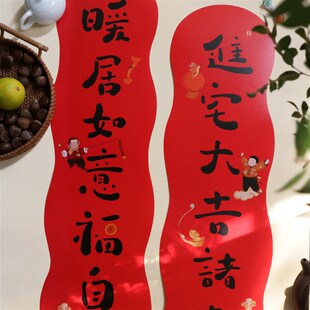 進宅大吉諸
暖居如意福自